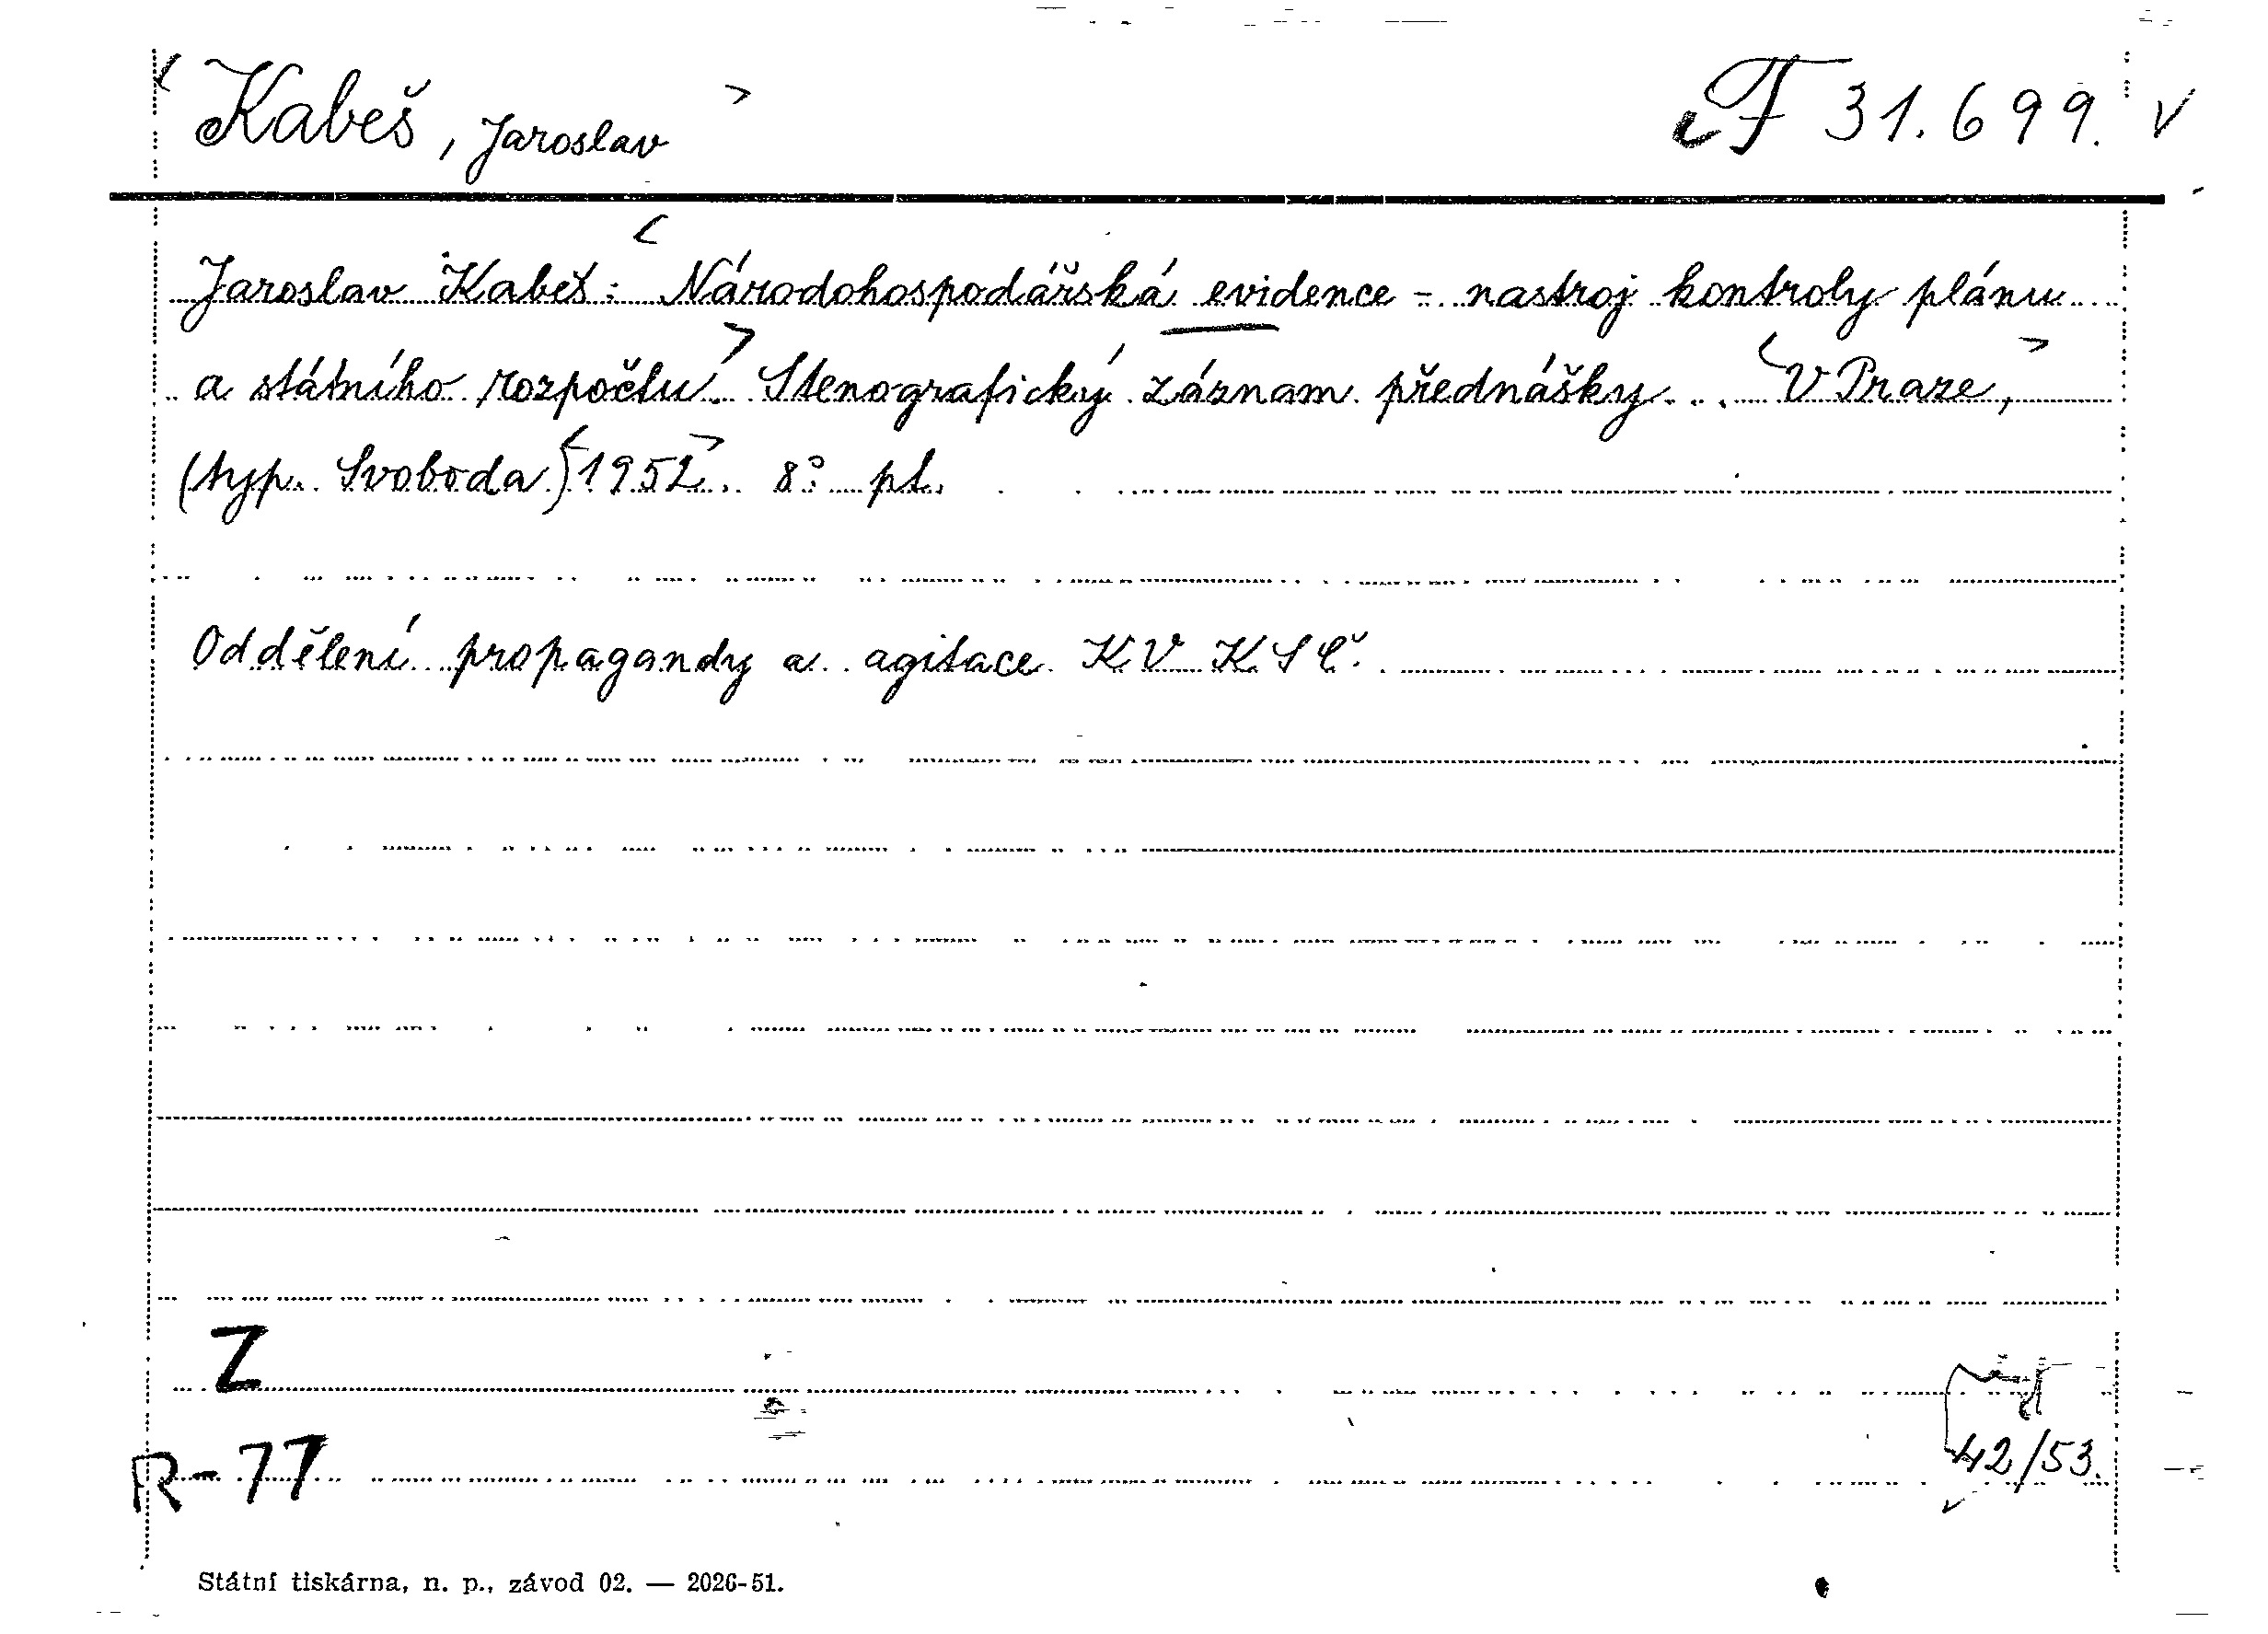 Kabeš, Jaroslav
F 31.699.
Jaroslav Kabeš: Národohospodářská evidence - nastroj kontroly plánu
a státního rozpočtu. Stenografický záznam přednášky... V Praze,
(typ. Svoboda) 1952. 8° pt.
Oddělení propagandy a agitace KV KSČ.
Z
R-77
42/53.
Státní tiskárna, n. p., závod 02. — 2026-51.